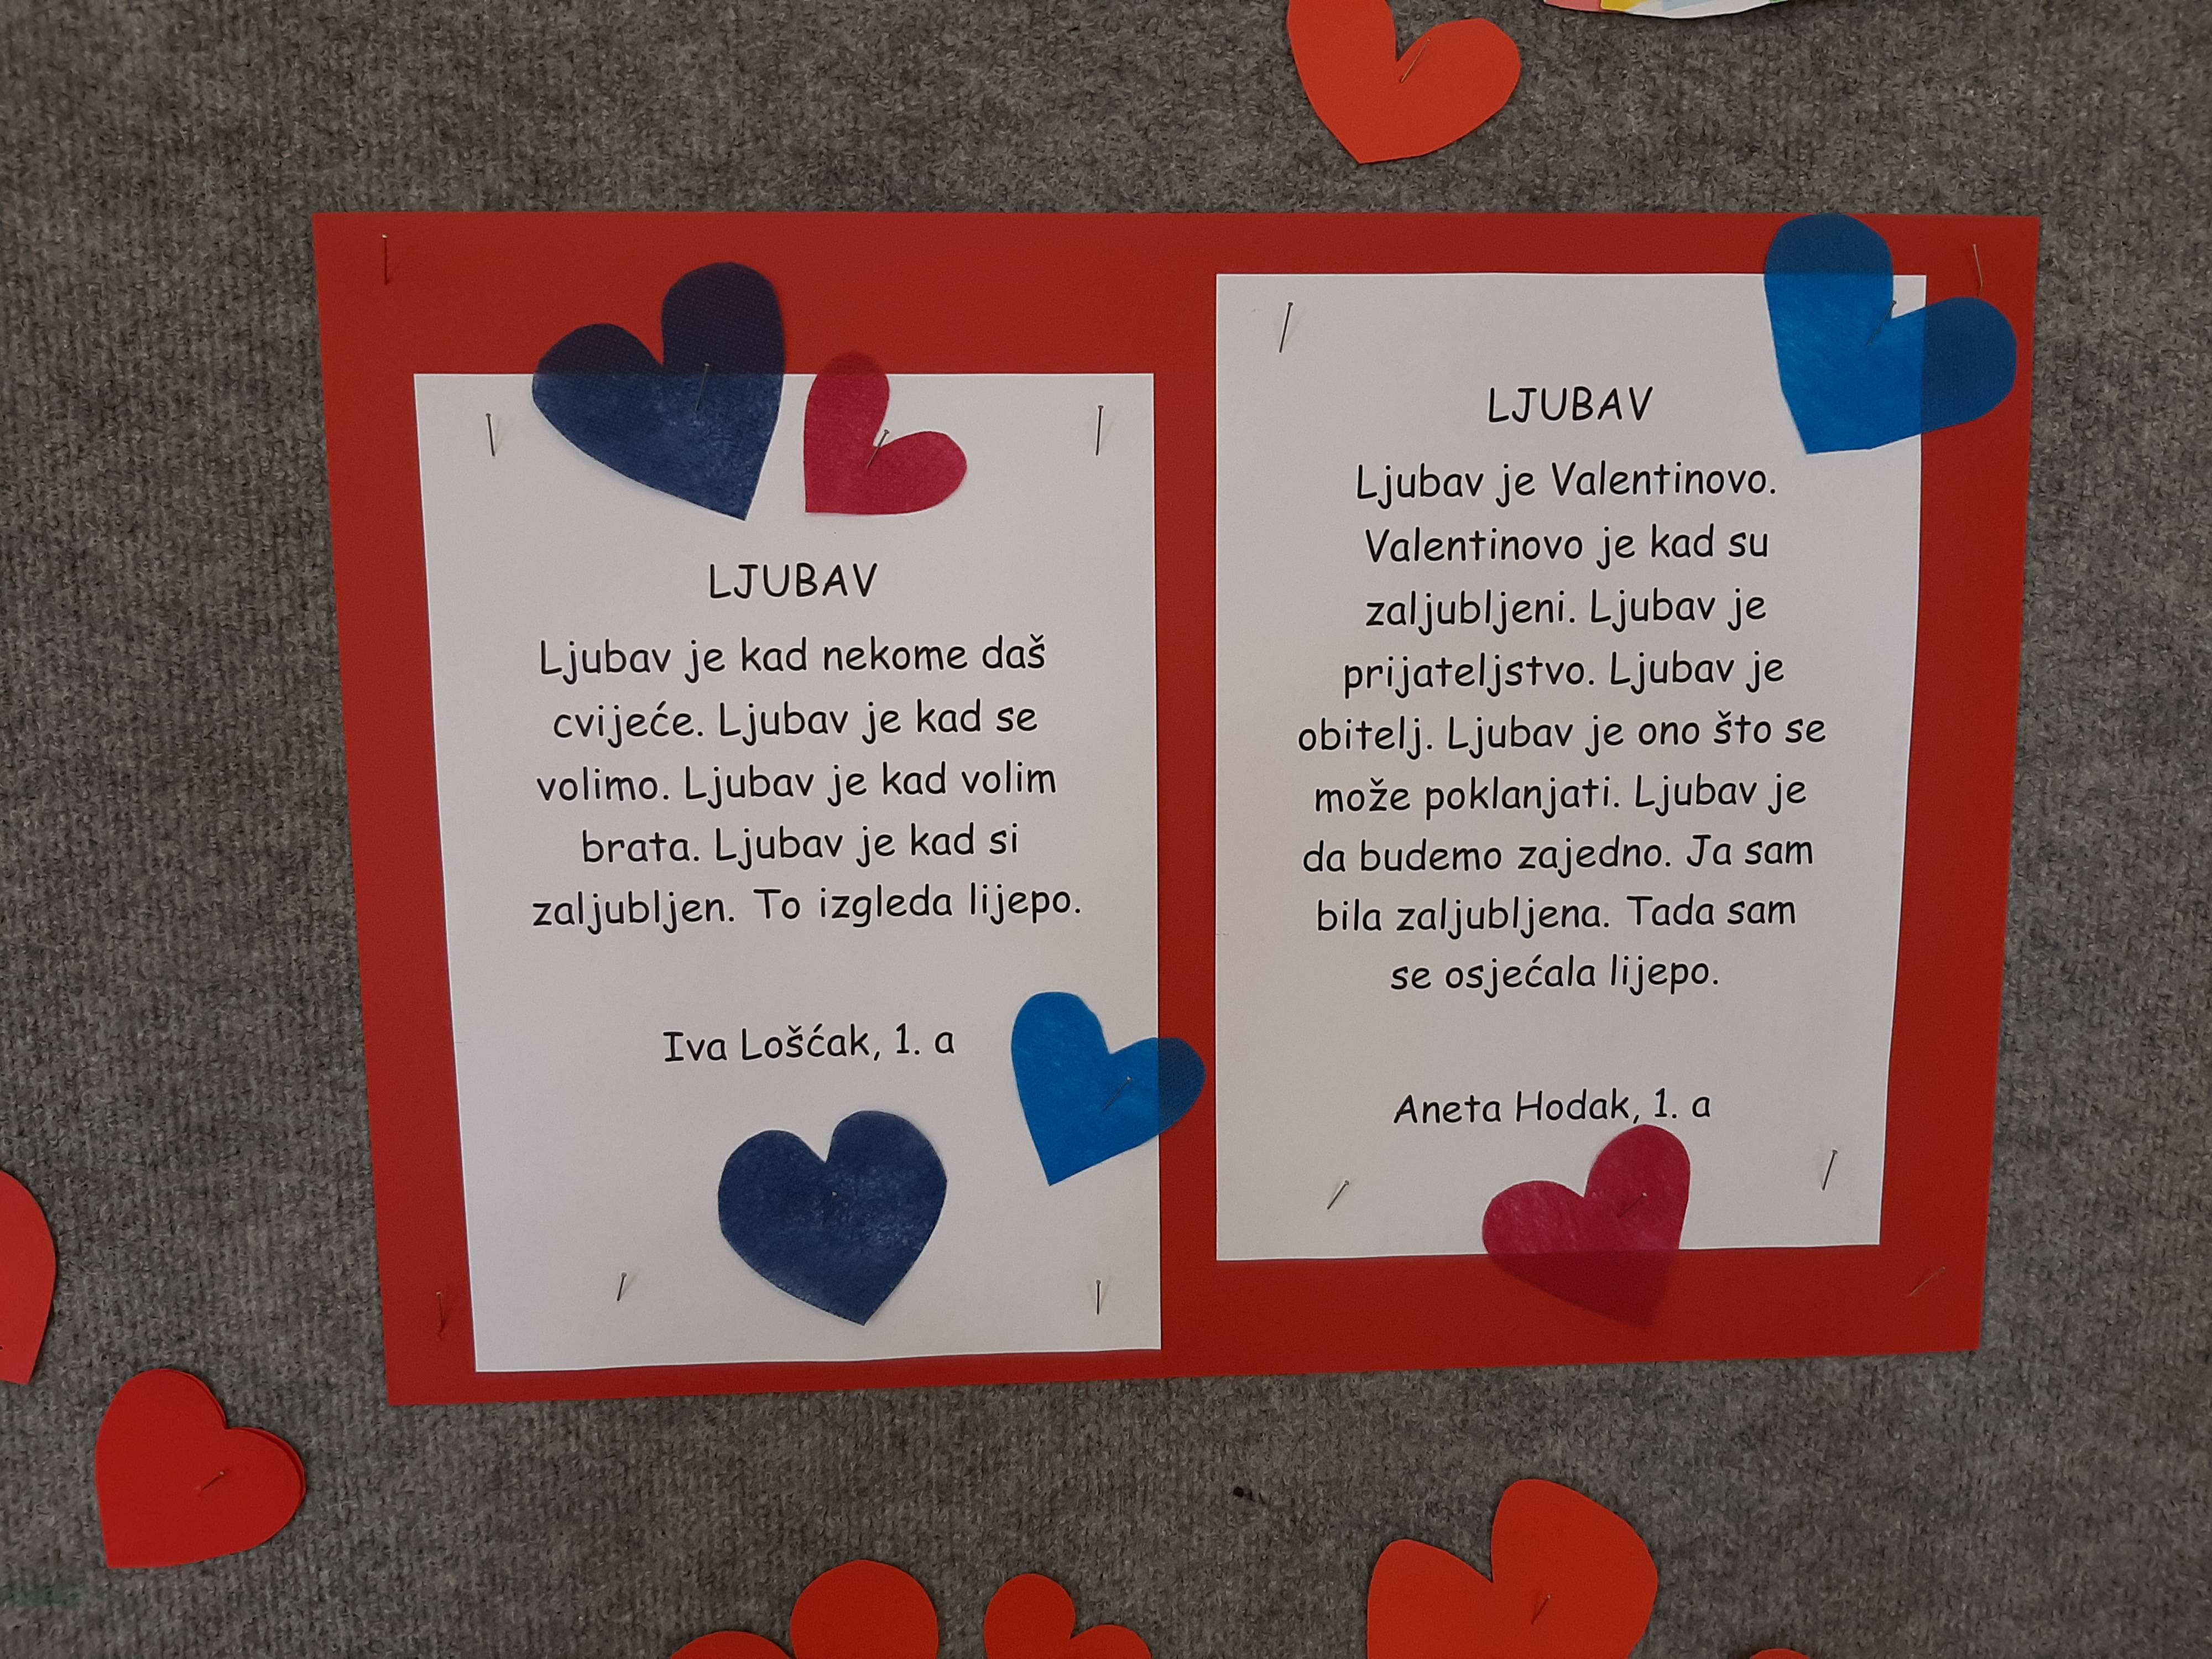 LJUBAV
Ljubav je kad nekome daš
cvijeće. Ljubav je kad se
volimo. Ljubav je kad volim
brata. Ljubav je kad si
zaljubljen. To izgleda lijepo.
Iva Lošćak, 1. a
LJUBAV
Ljubav je Valentinovo.
Valentinovo je kad su
zaljubljeni. Ljubav je
prijateljstvo. Ljubav je
obitelj. Ljubav je ono što se
može poklanjati. Ljubav je
da budemo zajedno. Ja sam
bila zaljubljena. Tada sam
se osjećala lijepo.
Aneta Hodak, 1. a